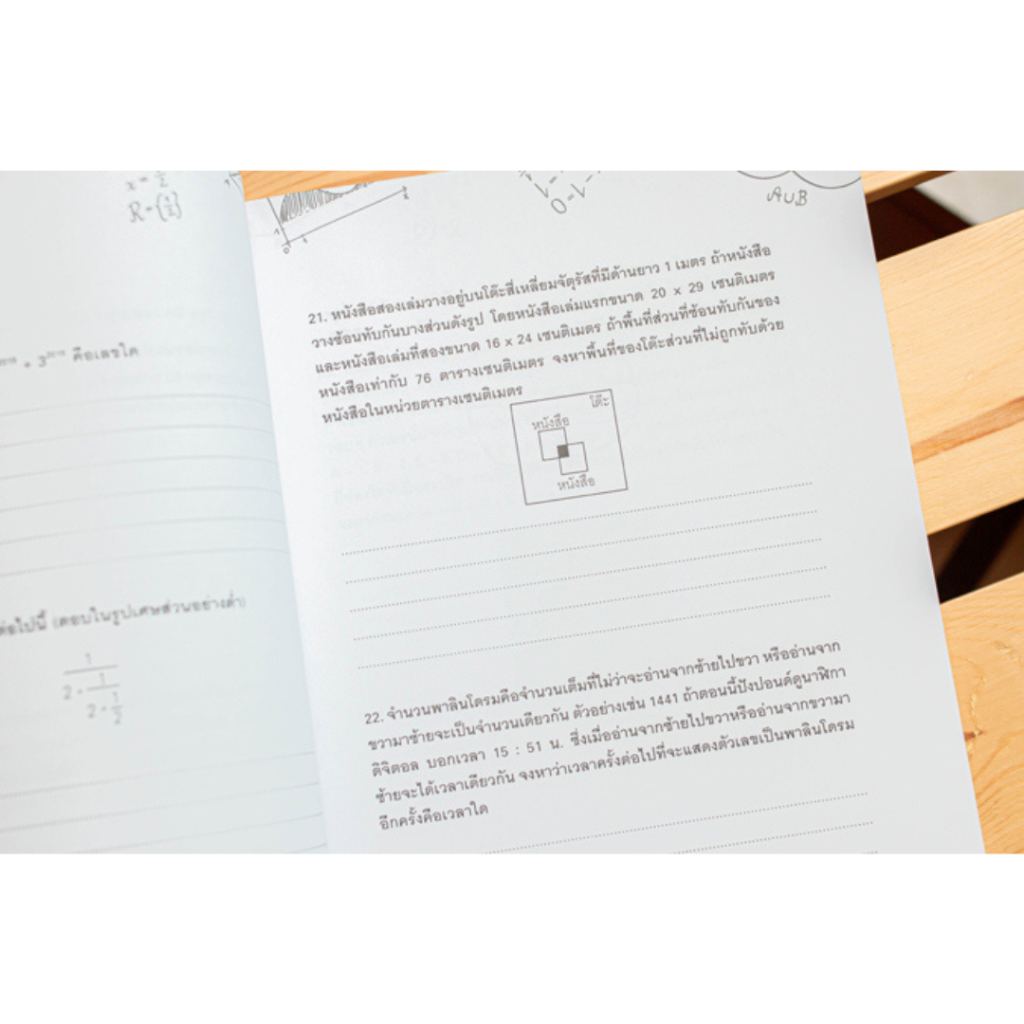 x = 1/2
R = {1/2}
A∪B
คือเลขใด
ต่อไปนี้ (ตอบในรูปเศษส่วนอย่างต่ำ)
1
2 + 1
2 + 1
2
21. หนังสือสองเล่มวางอยู่บนโต๊ะสี่เหลี่ยมจัตุรัสที่มีด้านยาว 1 เมตร ถ้าหนังสือ
วางซ้อนทับกันบางส่วนดังรูป โดยหนังสือเล่มแรกขนาด 20 x 29 เซนติเมตร
และหนังสือเล่มที่สองขนาด 16 x 24 เซนติเมตร ถ้าพื้นที่ส่วนที่ซ้อนทับกันของ
หนังสือเท่ากับ 76 ตารางเซนติเมตร จงหาพื้นที่ของโต๊ะส่วนที่ไม่ถูกทับด้วย
หนังสือในหน่วยตารางเซนติเมตร
โต๊ะ
หนังสือ
หนังสือ
22. จำนวนพาลินโดรมคือจำนวนเต็มที่ไม่ว่าจะอ่านจากซ้ายไปขวา หรืออ่านจาก
ขวามาซ้ายจะเป็นจำนวนเดียวกัน ตัวอย่างเช่น 1441 ถ้าตอนนี้ปังปอนด์ดูนาฬิกา
ดิจิตอล บอกเวลา 15 : 51 น. ซึ่งเมื่ออ่านจากซ้ายไปขวาหรืออ่านจากขวามา
ซ้ายจะได้เวลาเดียวกัน จงหาว่าเวลาครั้งต่อไปที่จะแสดงตัวเลขเป็นพาลินโดรม
อีกครั้งคือเวลาใด